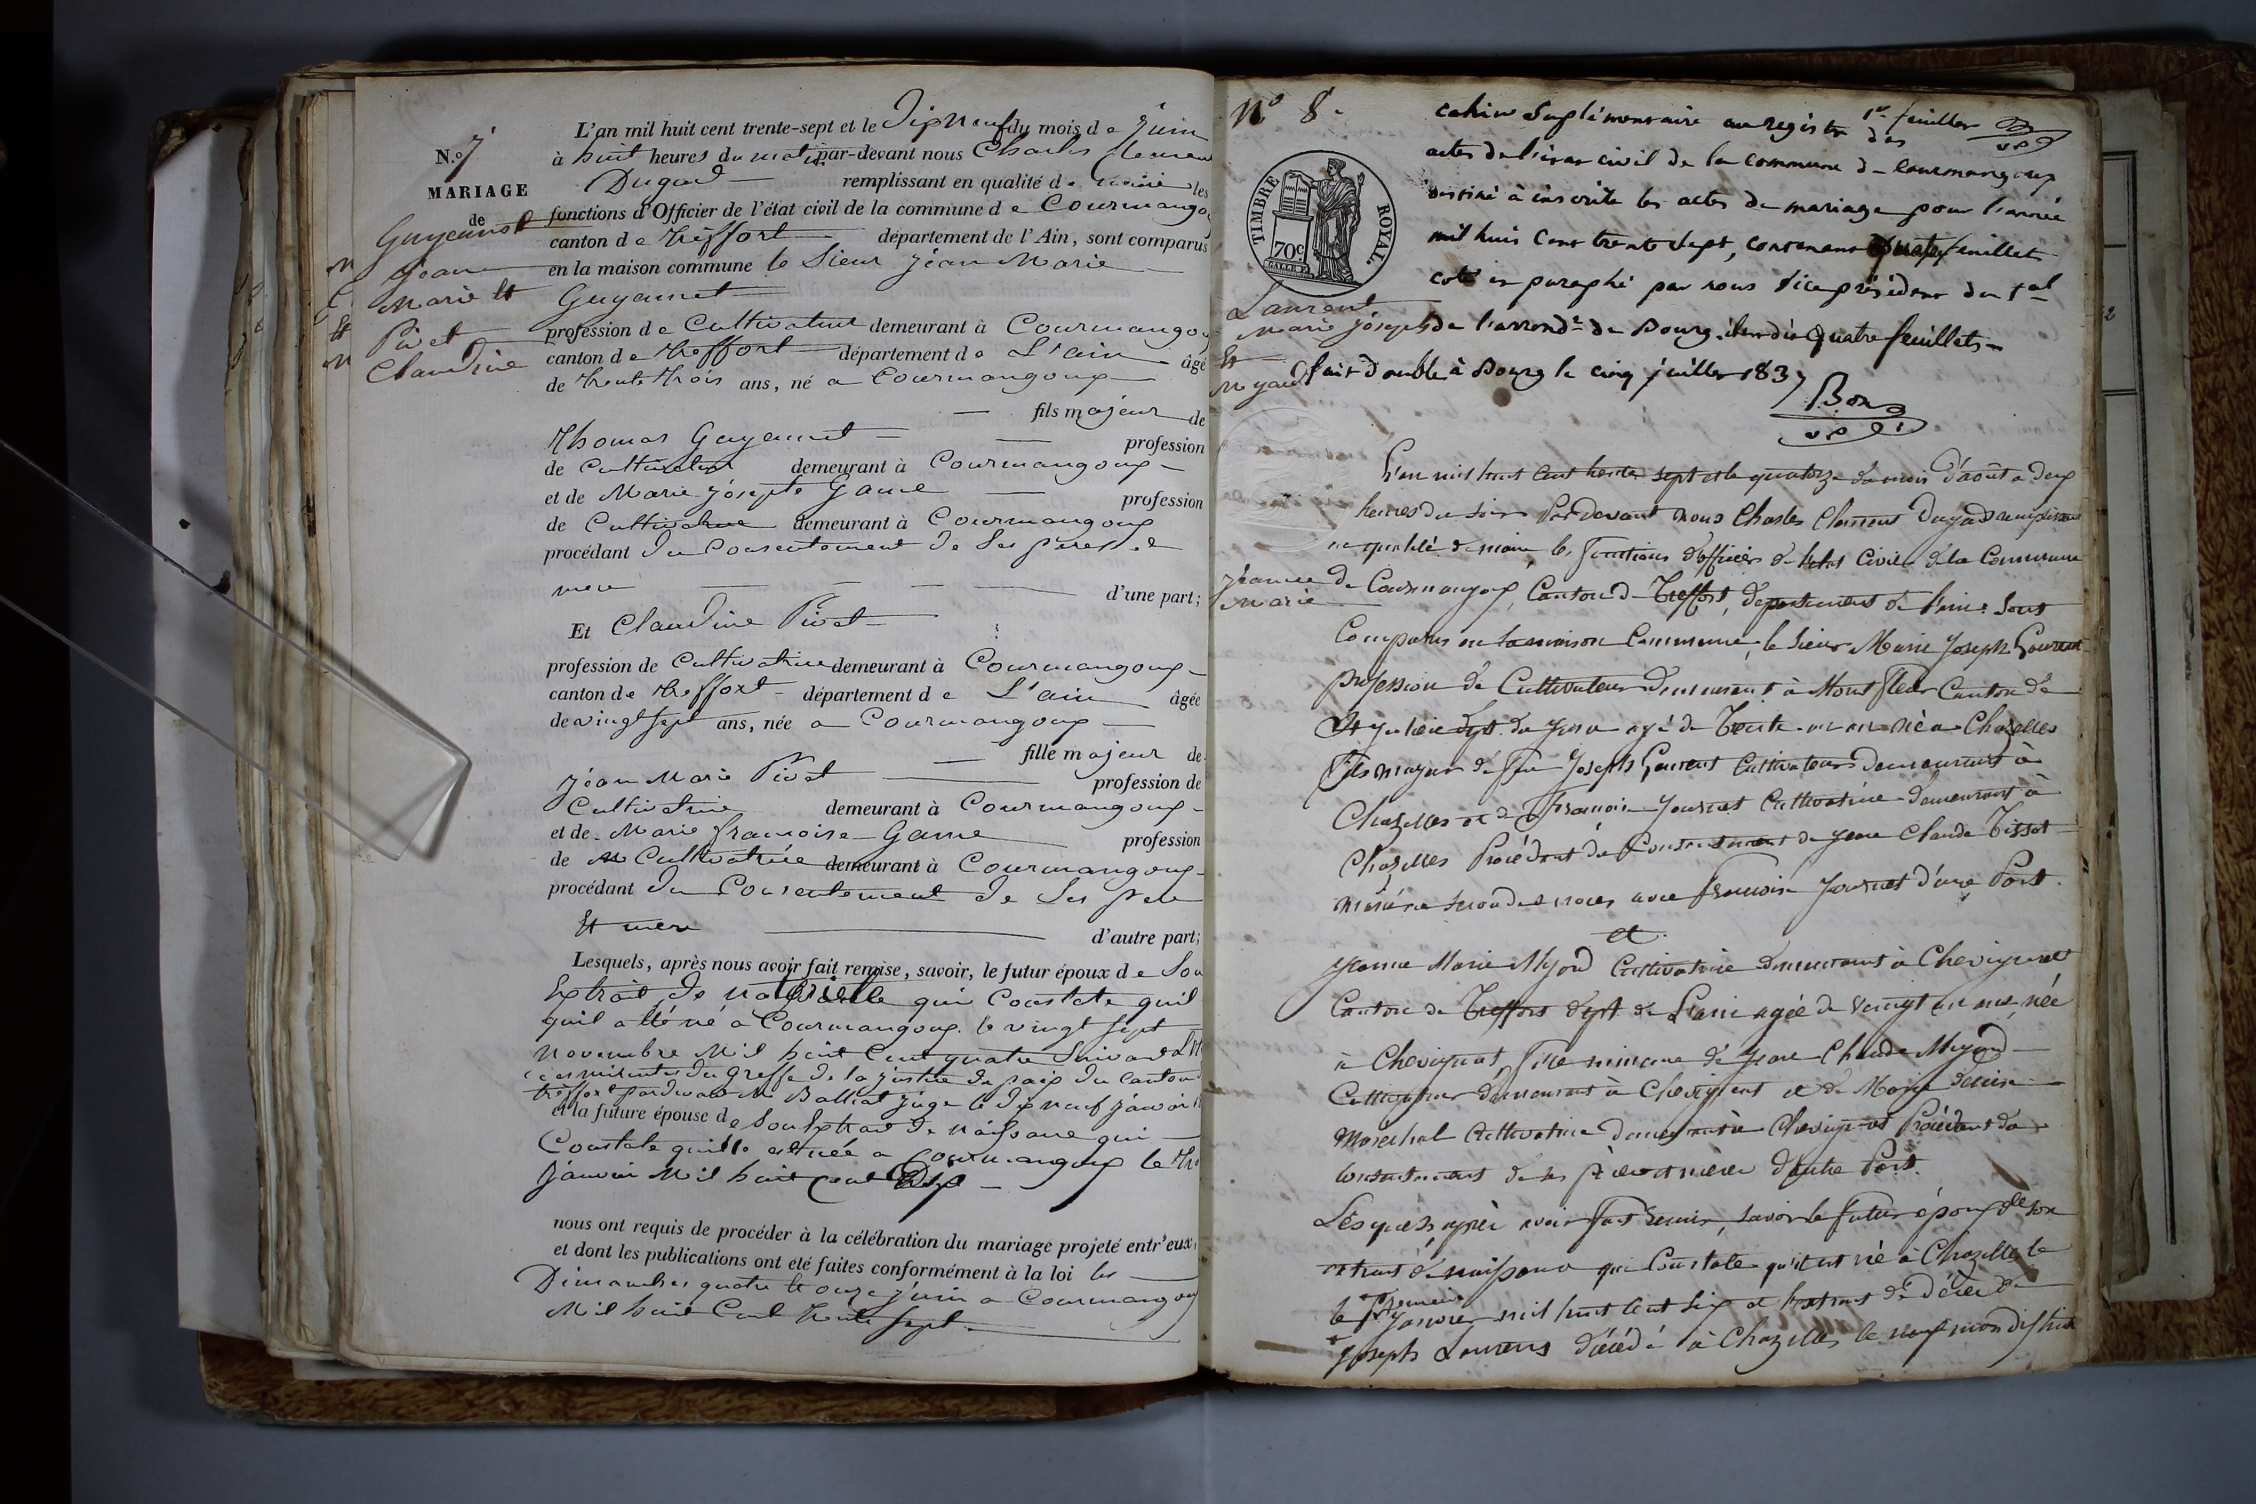 N.o 7
MARIAGE
de
Guyennet
Jean
Marie et
Pivet
Claudine
L'an mil huit cent trente-sept et le Dix neuf du mois de Juin
à huit heures du matin par-devant nous Charles Clement
Dugad remplissant en qualité de maire les
fonctions d'Officier de l'état civil de la commune de Courmangoux
canton de Treffort département de l'Ain, sont comparus
en la maison commune le Sieur Jean Marie
Guyennet
profession de Cultivateur demeurant à Courmangoux
canton de Treffort département de L'ain âgé
de trente trois ans, né a Courmangoux
fils majeur de
Thomas Guyennet profession
de Cultivateur demeurant à Courmangoux
et de Marie Josephte Game profession
de Cultivatrice demeurant à Courmangoux
procédant du Consentement de Ses pere et
mere d'une part;
Et Claudine Pivet
profession de Cultivatrice demeurant à Courmangoux
canton de Treffort département de L'ain âgée
de vingt sept ans, née a Courmangoux
fille majeur de
Jean Marie Pivet profession de
Cultivateur demeurant à Courmangoux
et de Marie francoise Game profession
de Cultivatrice demeurant à Courmangoux
procédant du Consentement de Ses pere
Et mere d'autre part;
Lesquels, après nous avoir fait remise, savoir, le futur époux de Son
Extrait de qui Constate quil
quil a été né a Courmangoux le vingt sept
Novembre Mil huit Cent quatre Suivant
minutes du Greffe de la justice de paix du Canton
treffort pardevant M Balliat juge le dix neuf janvier
et la future épouse de Son Extrait de naissance qui
Constate quelle est née a Courmangoux le
Janvier Mil huit Cent Dix
nous ont requis de procéder à la célébration du mariage projeté entr'eux,
et dont les publications ont été faites conformément à la loi les
Dimanches quatre et onze juin a Courmangoux
Mil huit Cent trente Sept.
N° 8.
1er feuillet
cahier suplémentaire au registre des
actes de l'état civil de la commune de Courmangoux
destiné à inscrire les actes de mariage pour l'année
mil huit cent trente sept, contenant quatre feuillets
coté et paraphé par nous vice président du tal
de l'arrondt de Bourg. Quatre feuillets
fait double à Bourg le cinq juillet 1837
Bon
vp
TIMBRE ROYAL
70c
Laurent
Marie Joseph
Et
Myard
Jeanne
Marie
L'an mil huit cent trente sept et le quatorze du mois d'août a deux
heures du soir Pardevant nous Charles Clement Dugad remplissant
en qualité de maire les fonctions d'officier de l'etat Civil de la Commune
de Courmangoux, Canton de Treffort, departement de l'ain. Sont
Comparus en la maison Commune, le Sieur Marie Joseph Laurent
profession de Cultivateur Demeurant à Montfleur Canton de
St Julien dept du Jura agé de Trente un ans né a Chazelles
Fils majeur de feu Joseph Laurent Cultivateur Demeurant à
Chazelles et de Francoise Journet Cultivatrice demeurant à
Chazelles Procédant du Consentement de Jean Claude Tissot
marié en secondes noces avec Francoise Journet d'une Part.
et
Jeanne Marie Myard Cultivatrice Demeurant à Chevignat
Canton de Treffort dept de L'ain agée de vingt un ans, née
à Chevignat Fille mineure de Jean Claude Myard
Cultivateur Demeurant à Chevignat et de Marie denise
Maréchal Cultivatrice demeurant à Chevignat Procédant du
Consentement de ses père et mère d'autre Part.
Lesquels, après avoir fait remise, savoir le futur époux de son
extrait de naissance qui Constate qu'il est né à Chazelles le
le premier Janvier mil huit cent six et l'extrait de décès de
Joseph Laurent décédé à Chazelles le neuf